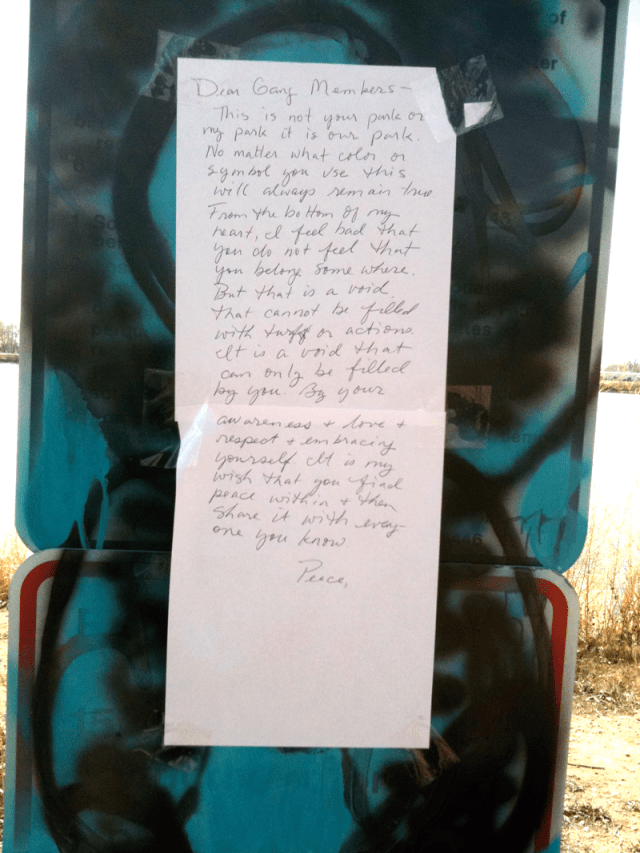 of
er
Dear Gang Members –
This is not your park or
my park it is our park.
No matter what color or
symbol you use this
will always remain true
From the bottom of my
heart, I feel bad that
you do not feel that
you belong some where.
But that is a void
that cannot be filled
with turf or actions.
It is a void that
can only be filled
by you. By your
awareness + love +
respect + embracing
yourself. It is my
wish that you find
peace within + then
share it with every
one you know
Peace,